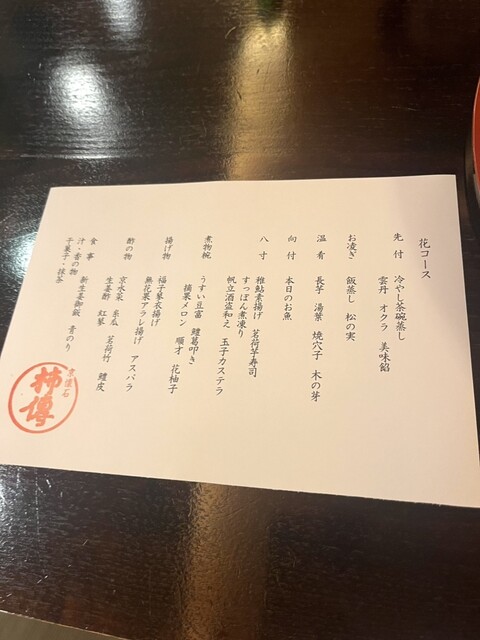 花コース
先付 冷やし茶碗蒸し
雲丹 オクラ 美味餡
お凌ぎ 飯蒸し 松の実
温肴 長芋 湯葉 焼穴子 木の芽
向付 本日のお魚
八寸 稚鮎素揚げ 茗荷芋寿司
すっぽん煮凍り
帆立酒盗和え 玉子カステラ
煮物椀 うすい豆富 鱧葛叩き
摘果メロン 順才 花柚子
揚げ物 福子琴衣揚げ
無花果アラレ揚げ アスパラ
酢の物 京水菜 糸瓜 茗荷竹 鱧皮
生姜酢 紅蓼
食事 新生姜御飯 青のり
汁・香の物
干菓子・抹茶
京懐石
柿傳